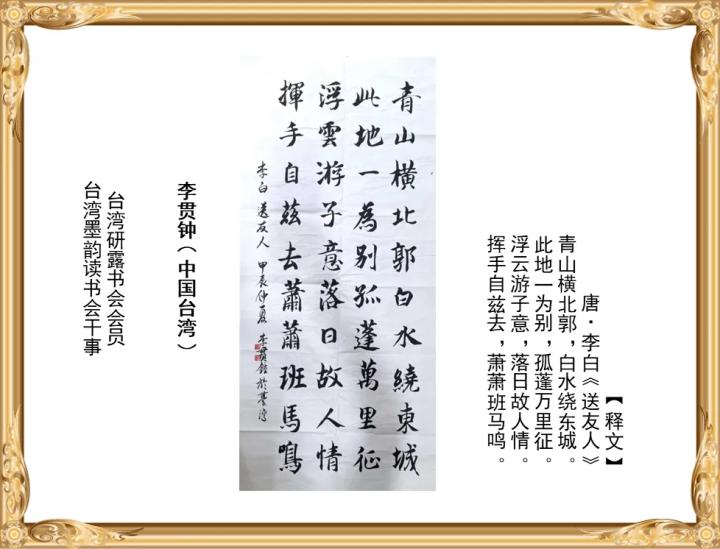 【释文】
唐·李白《送友人》
青山横北郭，白水绕东城。
此地一为别，孤蓬万里征。
浮云游子意，落日故人情。
挥手自兹去，萧萧班马鸣。
青山橫北郭白水繞東城
此地一為別孤蓬萬里征
浮雲游子意落日故人情
揮手自茲去蕭蕭班馬鳴
李白送友人 甲辰仲夏 李貫鐘於臺灣
李贯钟（中国台湾）
台湾研露书会会员
台湾墨韵读书会干事